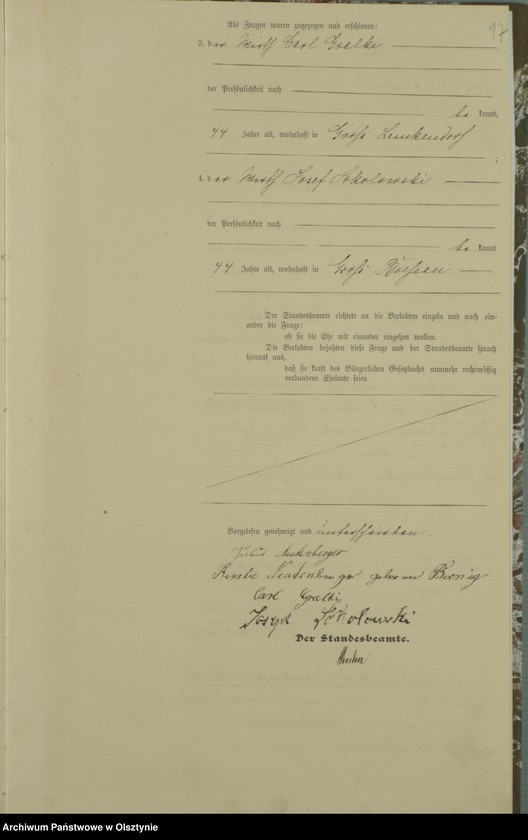 17
Als Zeugen waren zugezogen und erschienen:
3. der Wirth Carl Gralki
der Persönlichkeit nach
be kannt,
44 Jahre alt, wohnhaft in Groß Lemkendorf
;
4. der Wirth Josef Sokolowski
der Persönlichkeit nach
be kannt
44 Jahre alt, wohnhaft in Groß
Der Standesbeamte richtete an die Verlobten einzeln und nach ein-
ander die Frage:
ob sie die Ehe mit einander eingehen wollen.
Die Verlobten bejahten diese Frage und der Standesbeamte sprach
hierauf aus,
daß sie kraft des Bürgerlichen Gesetzbuchs nunmehr rechtmäßig
verbundene Eheleute seien
Vorgelesen, genehmigt und unterschrieben.
Neudenberger
Rosalie Neudenberger geborene
Carl Gralki
Joseph Sokolowski
Der Standesbeamte.
Archiwum Państwowe w Olsztynie